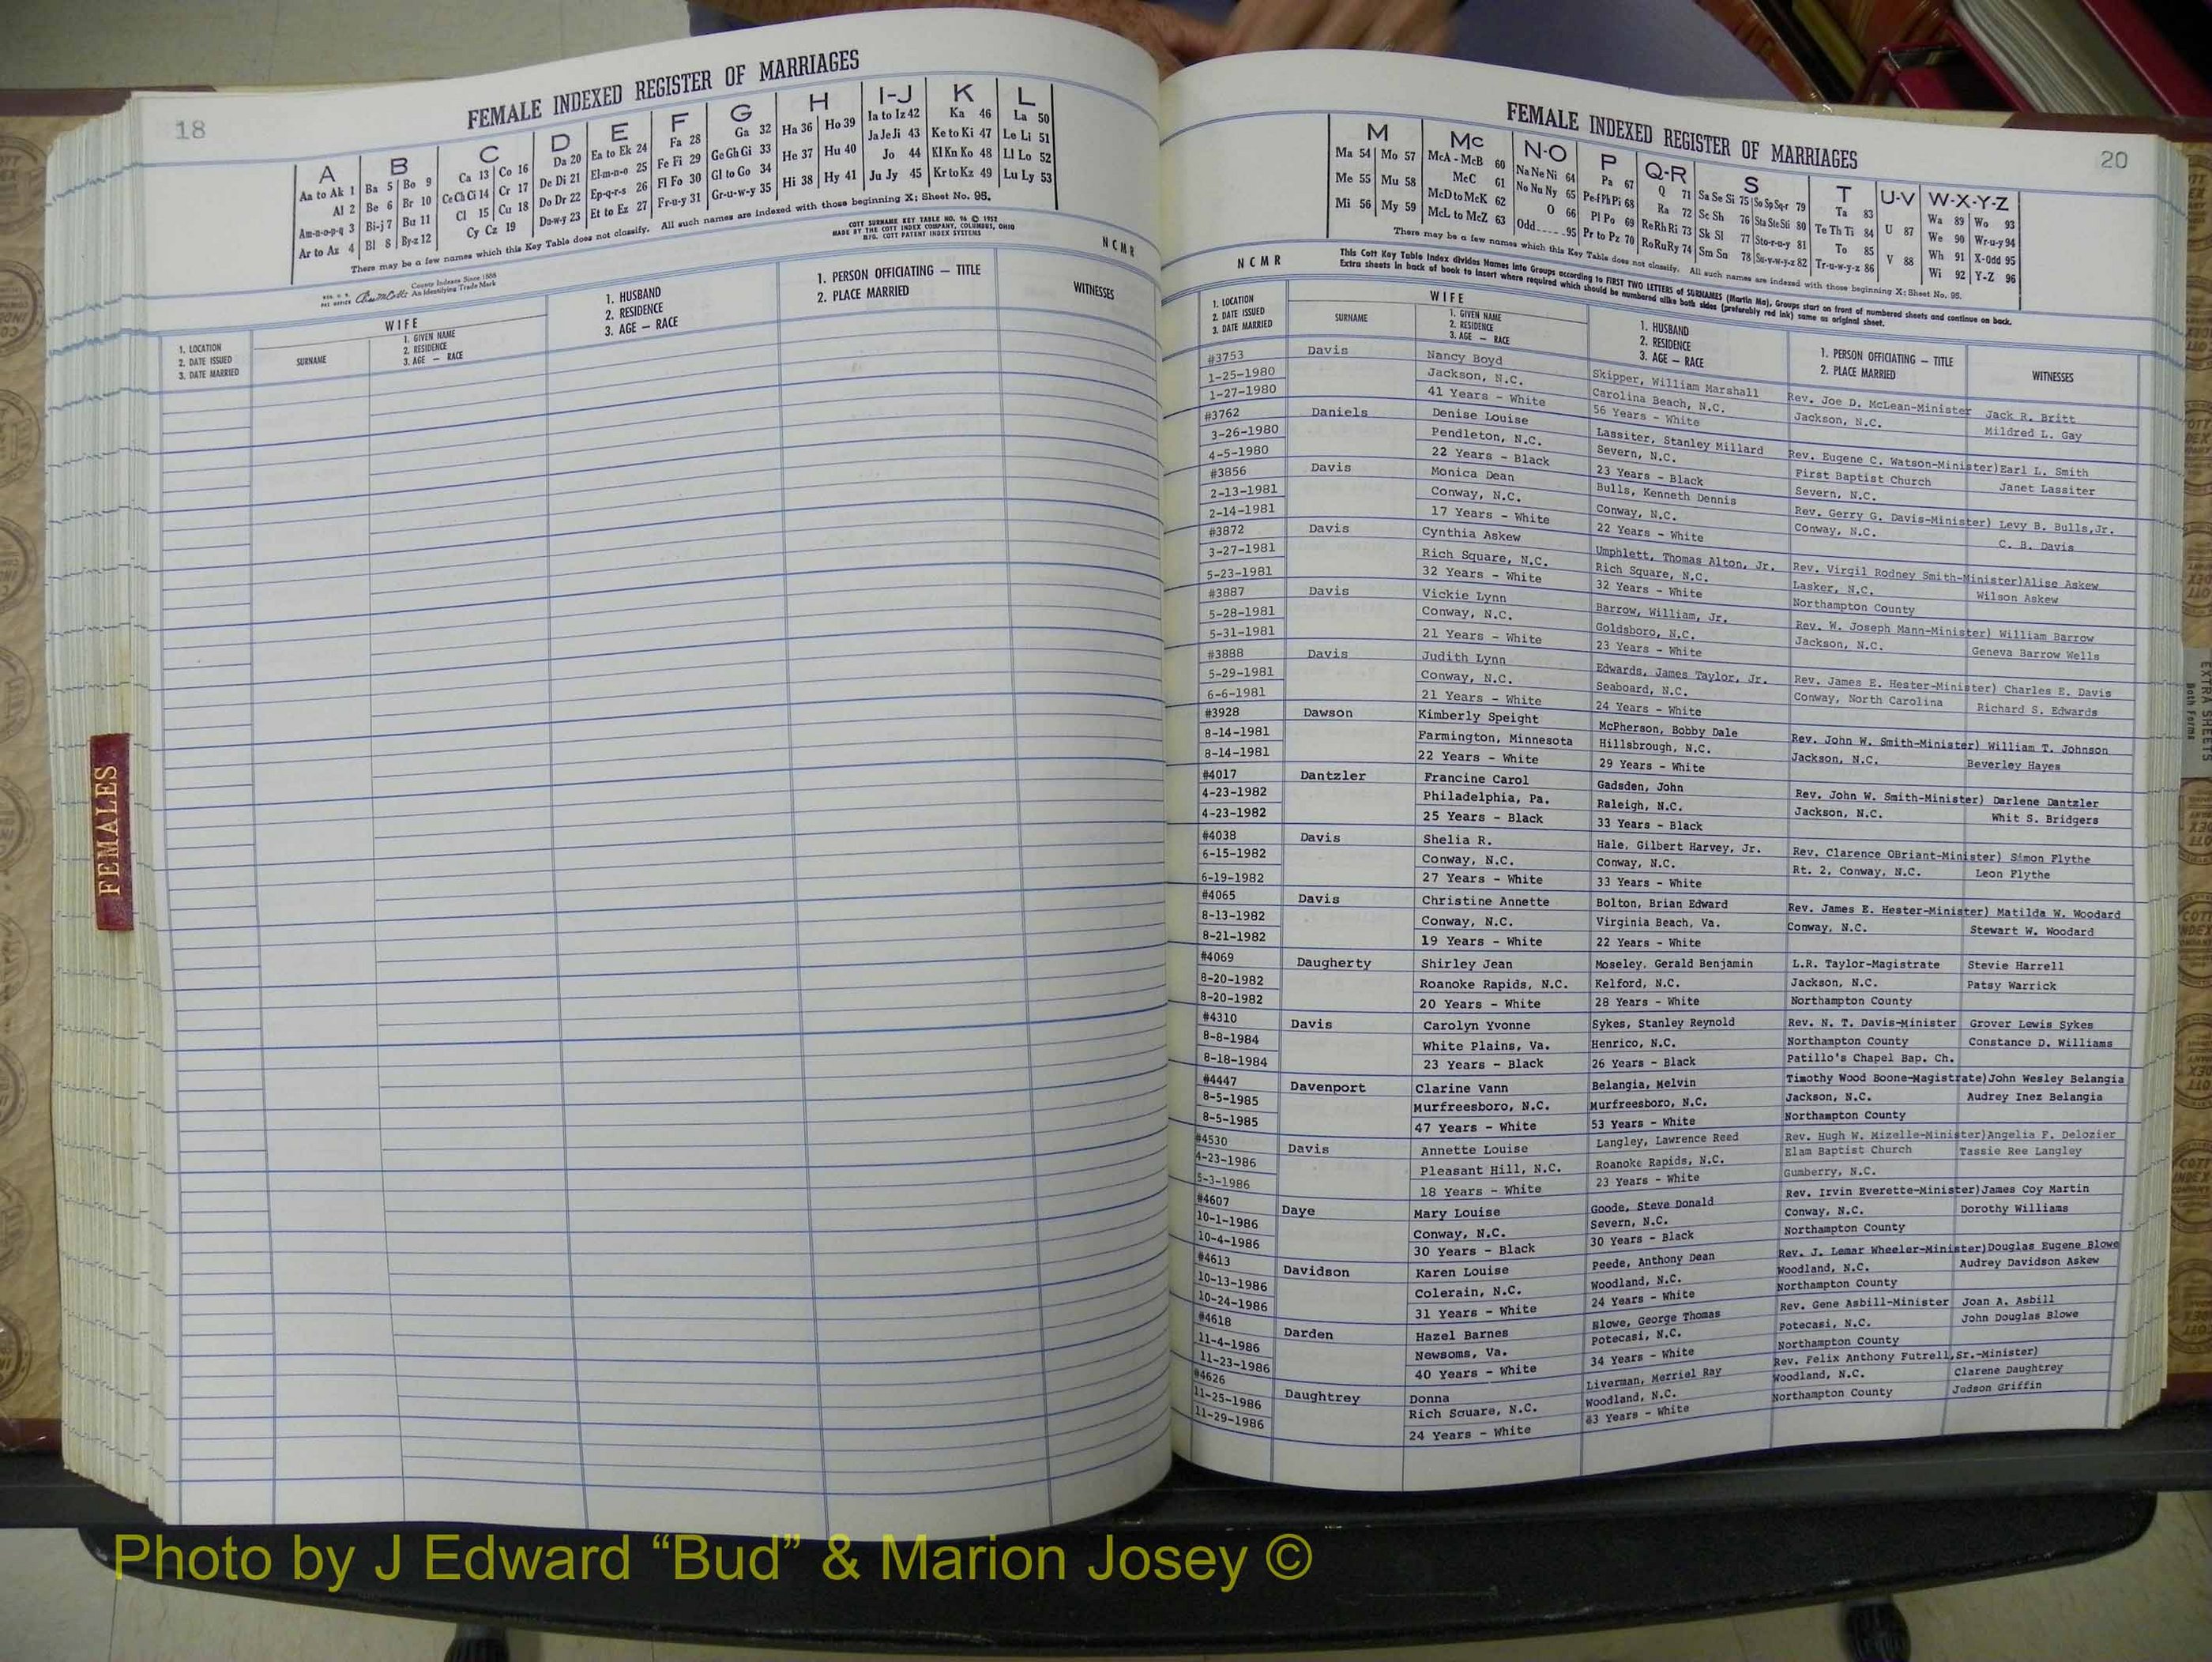 18
FEMALE INDEXED REGISTER OF MARRIAGES
A B C D E F G H I-J K L
Aa to Ak 1 Ba 5 Bo 9 Ca 13 Co 16 Da 20 Ea to Ek 24 Fa 28 Ga 32 Ha 36 Ho 39 Ia to Iz 42 Ka 46 La 50
Al 2 Be 6 Br 10 Ce Ch Ci 14 Cr 17 De Di 21 El-m-n-o 25 Fe Fi 29 Ge Gh Gi 33 He 37 Hu 40 Ja Je Ji 43 Ke to Ki 47 Le Li 51
Am-n-o-p-q 3 Bi-j 7 Bu 11 Cl 15 Cu 18 Do Dr 22 Ep-q-r-s 26 Fl Fo 30 Gl to Go 34 Hi 38 Hy 41 Jo 44 Kl Kn Ko 48 Ll Lo 52
Ar to Az 4 Bl 8 By-z 12 Cy Cz 19 Du-w-y 23 Et to Ez 27 Fr-u-y 31 Gr-u-w-y 35 Ju Jy 45 Kr to Kz 49 Lu Ly 53
There may be a few names which this Key Table does not classify. All such names are indexed with those beginning X; Sheet No. 95.
County Indexes Since 1888
An Identifying Trade Mark
COTT SURNAME KEY TABLE NO. 96 © 1952
MADE BY THE COTT INDEX COMPANY, COLUMBUS, OHIO
MFG. COTT PATENT INDEX SYSTEMS
NCMR
1. LOCATION
2. DATE ISSUED
3. DATE MARRIED
WIFE
SURNAME
1. GIVEN NAME
2. RESIDENCE
3. AGE — RACE
1. HUSBAND
2. RESIDENCE
3. AGE — RACE
1. PERSON OFFICIATING — TITLE
2. PLACE MARRIED
WITNESSES
FEMALES
20
FEMALE INDEXED REGISTER OF MARRIAGES
M Mc N-O P Q-R S T U-V W-X-Y-Z
Ma 54 Mo 57 McA - McB 60 Na Ne Ni 64 Pa 67 Q 71 Sa Se Si 75 So Sp Sq-r 79 Ta 83 U 87 Wa 89 Wo 93
Me 55 Mu 58 McC 61 No Nu Ny 65 Pe-f Ph Pi 68 Ra 72 Sc Sh 76 Sta Ste Sti 80 Te Th Ti 84 V 88 We 90 Wr-u-y 94
Mi 56 My 59 McD to McK 62 O 66 Pl Po 69 Re Rh Ri 73 Sk Sl 77 Sto-r-u-y 81 To 85 Wh 91 X-Odd 95
McL to McZ 63 Odd 95 Pr to Pz 70 Ro Ru Ry 74 Sm Sn 78 Su-v-w-y-z 82 Tr-u-w-y-z 86 Wi 92 Y-Z 96
There may be a few names which this Key Table does not classify. All such names are indexed with those beginning X; Sheet No. 95.
This Cott Key Table Index divides Names into Groups according to FIRST TWO LETTERS of SURNAMES (Martin Ma), Groups start on front of numbered sheets and continue on back.
Extra sheets in back of book to insert where required which should be numbered alike both sides (preferably red ink) same as original sheet.
NCMR
1. LOCATION
2. DATE ISSUED
3. DATE MARRIED
WIFE
SURNAME
1. GIVEN NAME
2. RESIDENCE
3. AGE — RACE
1. HUSBAND
2. RESIDENCE
3. AGE — RACE
1. PERSON OFFICIATING — TITLE
2. PLACE MARRIED
WITNESSES
#3753 Davis Nancy Boyd Skipper, William Marshall Rev. Joe D. McLean-Minister Jack R. Britt
1-25-1980 Jackson, N.C. Carolina Beach, N.C. Jackson, N.C. Mildred L. Gay
1-27-1980 41 Years - White 56 Years - White
#3762 Daniels Denise Louise Lassiter, Stanley Millard Rev. Eugene C. Watson-Minister) Earl L. Smith
3-26-1980 Pendleton, N.C. Severn, N.C. First Baptist Church Janet Lassiter
4-5-1980 22 Years - Black 23 Years - Black Severn, N.C.
#3856 Davis Monica Dean Bulls, Kenneth Dennis Rev. Gerry G. Davis-Minister) Levy B. Bulls,Jr.
2-13-1981 Conway, N.C. Conway, N.C. Conway, N.C. C. B. Davis
2-14-1981 17 Years - White 22 Years - White
#3872 Davis Cynthia Askew Umphlett, Thomas Alton, Jr. Rev. Virgil Rodney Smith-Minister)Alise Askew
3-27-1981 Rich Square, N.C. Rich Square, N.C. Lasker, N.C. Wilson Askew
5-23-1981 32 Years - White 32 Years - White Northampton County
#3887 Davis Vickie Lynn Barrow, William, Jr. Rev. W. Joseph Mann-Minister) William Barrow
5-28-1981 Conway, N.C. Goldsboro, N.C. Jackson, N.C. Geneva Barrow Wells
5-31-1981 21 Years - White 23 Years - White
#3888 Davis Judith Lynn Edwards, James Taylor, Jr. Rev. James E. Hester-Minister) Charles E. Davis
5-29-1981 Conway, N.C. Seaboard, N.C. Conway, North Carolina Richard S. Edwards
6-6-1981 21 Years - White 24 Years - White
#3928 Dawson Kimberly Speight McPherson, Bobby Dale Rev. John W. Smith-Minister) William T. Johnson
8-14-1981 Farmington, Minnesota Hillsbrough, N.C. Jackson, N.C. Beverley Hayes
8-14-1981 22 Years - White 29 Years - White
#4017 Dantzler Francine Carol Gadsden, John Rev. John W. Smith-Minister) Darlene Dantzler
4-23-1982 Philadelphia, Pa. Raleigh, N.C. Jackson, N.C. Whit S. Bridgers
4-23-1982 25 Years - Black 33 Years - Black
#4038 Davis Shelia R. Hale, Gilbert Harvey, Jr. Rev. Clarence OBriant-Minister) Simon Flythe
6-15-1982 Conway, N.C. Conway, N.C. Rt. 2, Conway, N.C. Leon Flythe
6-19-1982 27 Years - White 33 Years - White
#4065 Davis Christine Annette Bolton, Brian Edward Rev. James E. Hester-Minister) Matilda W. Woodard
8-13-1982 Conway, N.C. Virginia Beach, Va. Conway, N.C. Stewart W. Woodard
8-21-1982 19 Years - White 22 Years - White
#4069 Daugherty Shirley Jean Moseley, Gerald Benjamin L.R. Taylor-Magistrate Stevie Harrell
8-20-1982 Roanoke Rapids, N.C. Kelford, N.C. Jackson, N.C. Patsy Warrick
8-20-1982 20 Years - White 28 Years - White Northampton County
#4310 Davis Carolyn Yvonne Sykes, Stanley Reynold Rev. N. T. Davis-Minister Grover Lewis Sykes
8-8-1984 White Plains, Va. Henrico, N.C. Northampton County Constance D. Williams
8-18-1984 23 Years - Black 26 Years - Black Patillo's Chapel Bap. Ch.
#4447 Davenport Clarine Vann Belangia, Melvin Timothy Wood Boone-Magistrate)John Wesley Belangia
8-5-1985 Murfreesboro, N.C. Murfreesboro, N.C. Jackson, N.C. Audrey Inez Belangia
8-5-1985 47 Years - White 53 Years - White Northampton County
#4530 Davis Annette Louise Langley, Lawrence Reed Rev. Hugh W. Mizelle-Minister)Angelia F. Delozier
4-23-1986 Pleasant Hill, N.C. Roanoke Rapids, N.C. Elam Baptist Church Tassie Ree Langley
5-3-1986 18 Years - White 23 Years - White Gumberry, N.C.
#4607 Daye Mary Louise Goode, Steve Donald Rev. Irvin Everette-Minister)James Coy Martin
10-1-1986 Conway, N.C. Severn, N.C. Conway, N.C. Dorothy Williams
10-4-1986 30 Years - Black 30 Years - Black Northampton County
#4613 Davidson Karen Louise Peede, Anthony Dean Rev. J. Lemar Wheeler-Minister)Douglas Eugene Blowe
10-13-1986 Colerain, N.C. Woodland, N.C. Woodland, N.C. Audrey Davidson Askew
10-24-1986 31 Years - White 24 Years - White Northampton County
#4618 Darden Hazel Barnes Blowe, George Thomas Rev. Gene Asbill-Minister Joan A. Asbill
11-4-1986 Newsoms, Va. Potecasi, N.C. Potecasi, N.C. John Douglas Blowe
11-23-1986 40 Years - White 34 Years - White Northampton County
#4626 Daughtrey Donna Liverman, Merriel Ray Rev. Felix Anthony Futrell,Sr.-Minister)
11-25-1986 Rich Square, N.C. Woodland, N.C. Woodland, N.C. Clarene Daughtrey
11-29-1986 24 Years - White 63 Years - White Northampton County Judson Griffin
EXTRA SHEETS
Both Forms
Photo by J Edward “Bud” & Marion Josey ©